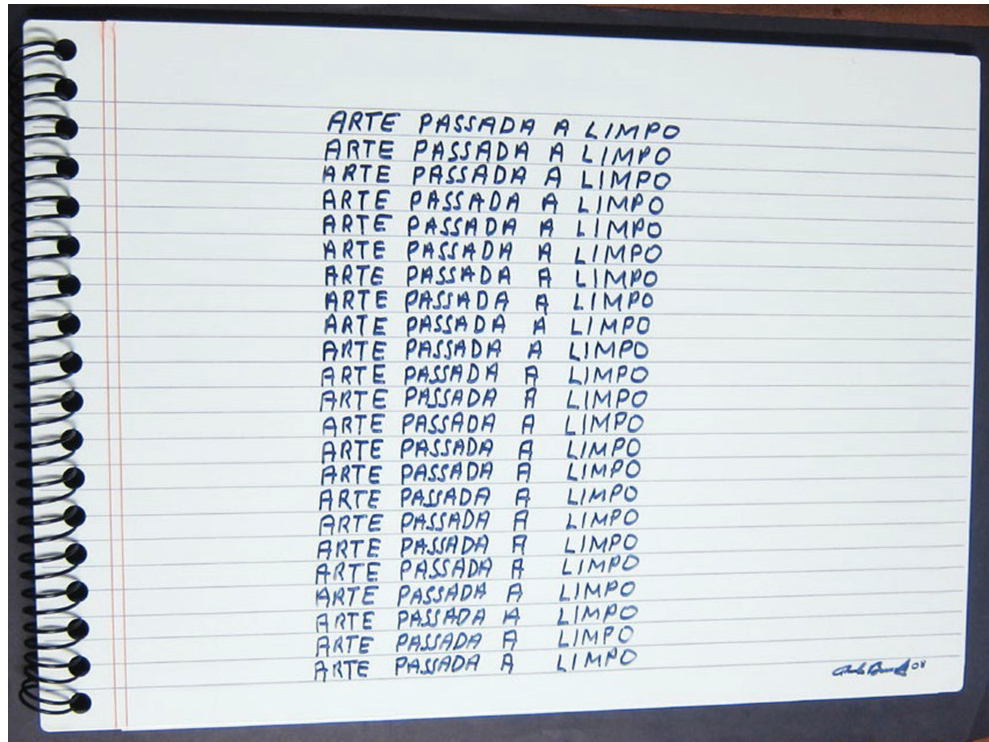 ARTE PASSADA A LIMPO
ARTE PASSADA A LIMPO
ARTE PASSADA A LIMPO
ARTE PASSADA A LIMPO
ARTE PASSADA A LIMPO
ARTE PASSADA A LIMPO
ARTE PASSADA A LIMPO
ARTE PASSADA A LIMPO
ARTE PASSADA A LIMPO
ARTE PASSADA A LIMPO
ARTE PASSADA A LIMPO
ARTE PASSADA A LIMPO
ARTE PASSADA A LIMPO
ARTE PASSADA A LIMPO
ARTE PASSADA A LIMPO
ARTE PASSADA A LIMPO
ARTE PASSADA A LIMPO
ARTE PASSADA A LIMPO
ARTE PASSADA A LIMPO
ARTE PASSADA A LIMPO
ARTE PASSADA A LIMPO
ARTE PASSADA A LIMPO
ARTE PASSADA A LIMPO
08